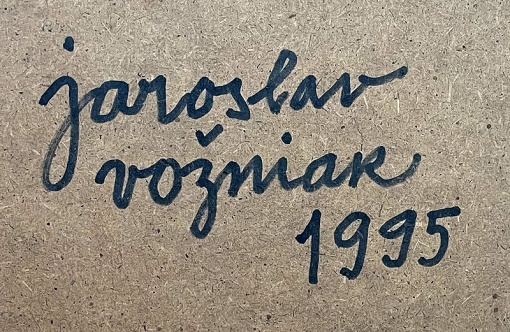 jaroslav
vožniak
1995